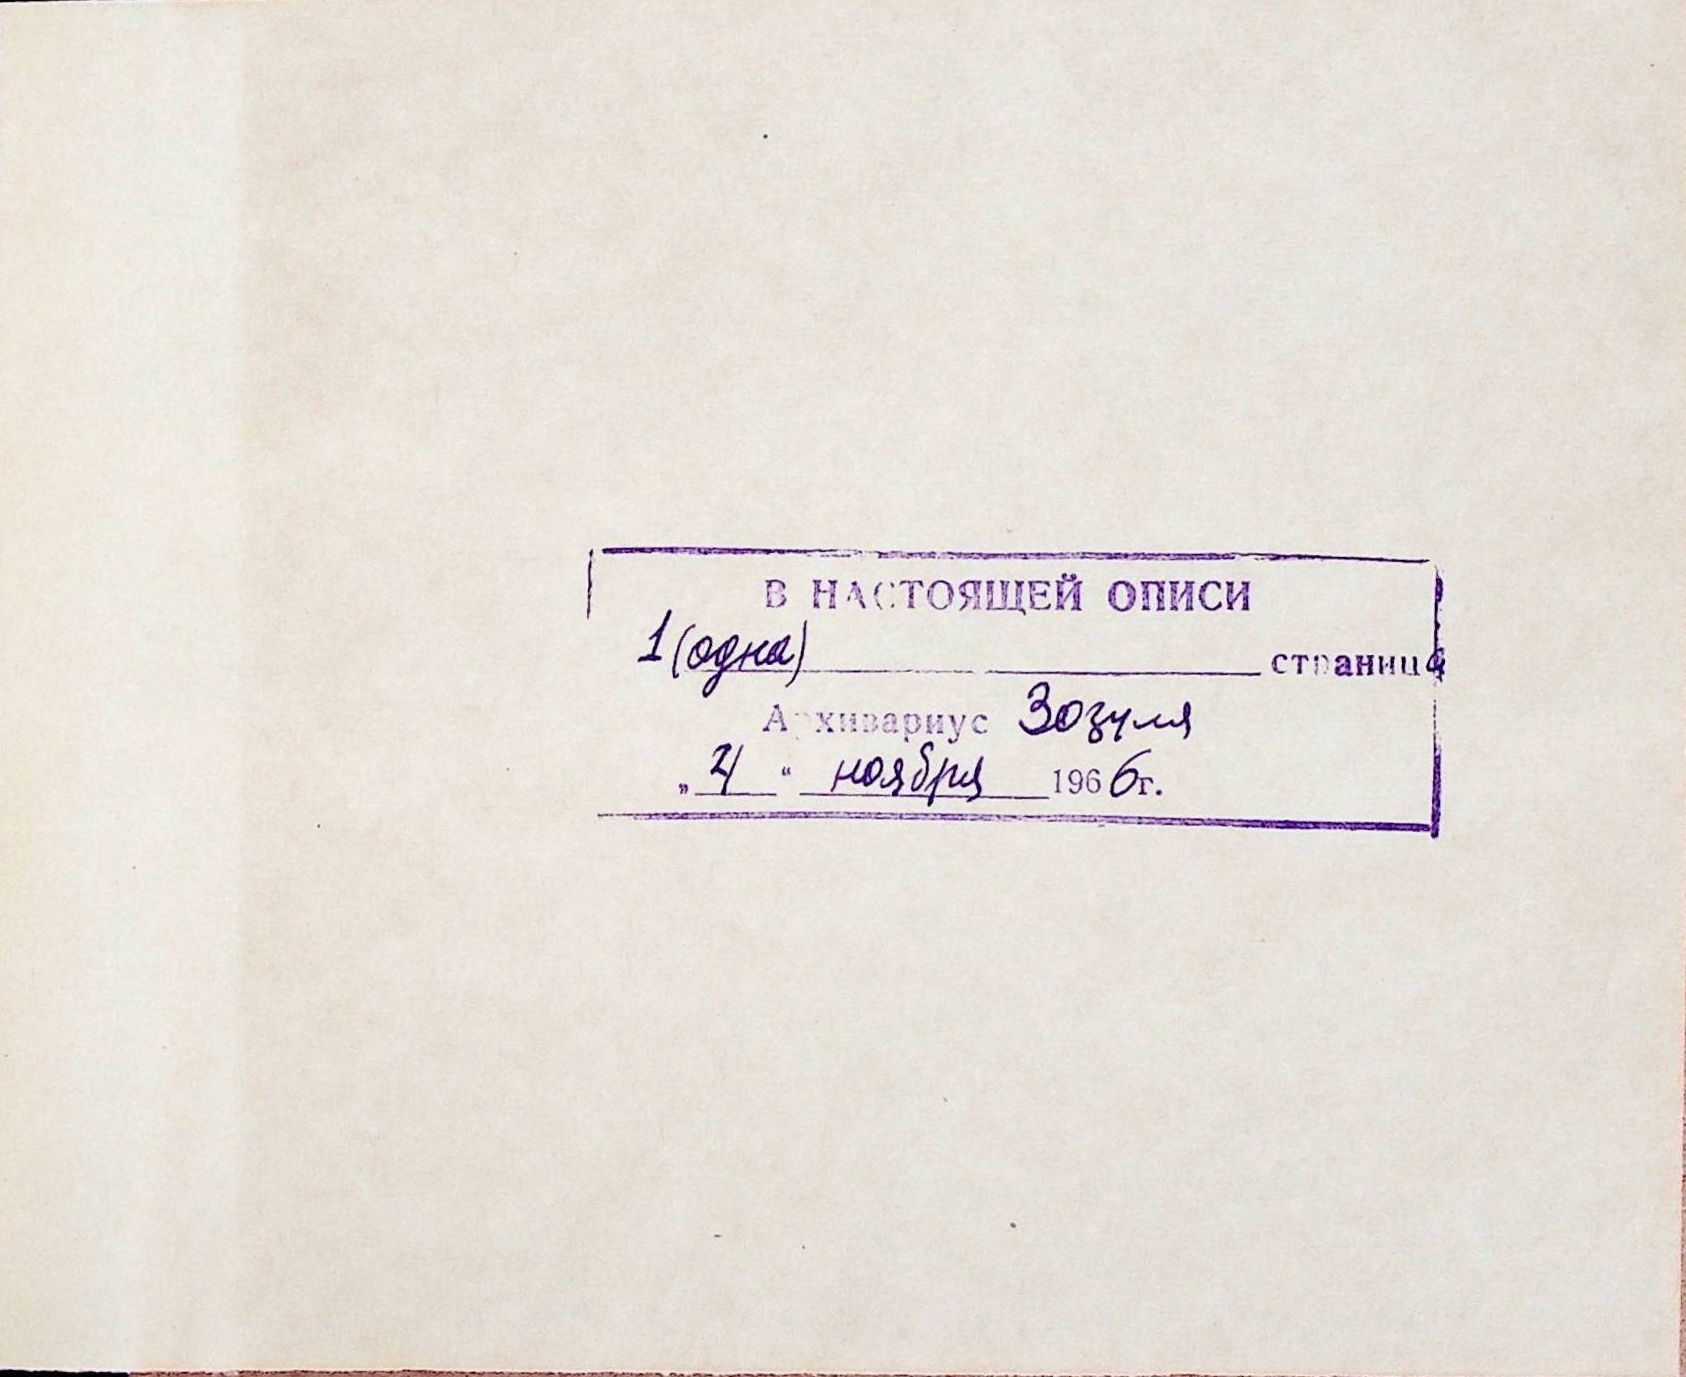 В НАСТОЯЩЕЙ ОПИСИ
1 (одна) страница
Архивариус Зозуля
„ 4 “ ноября 1966 г.